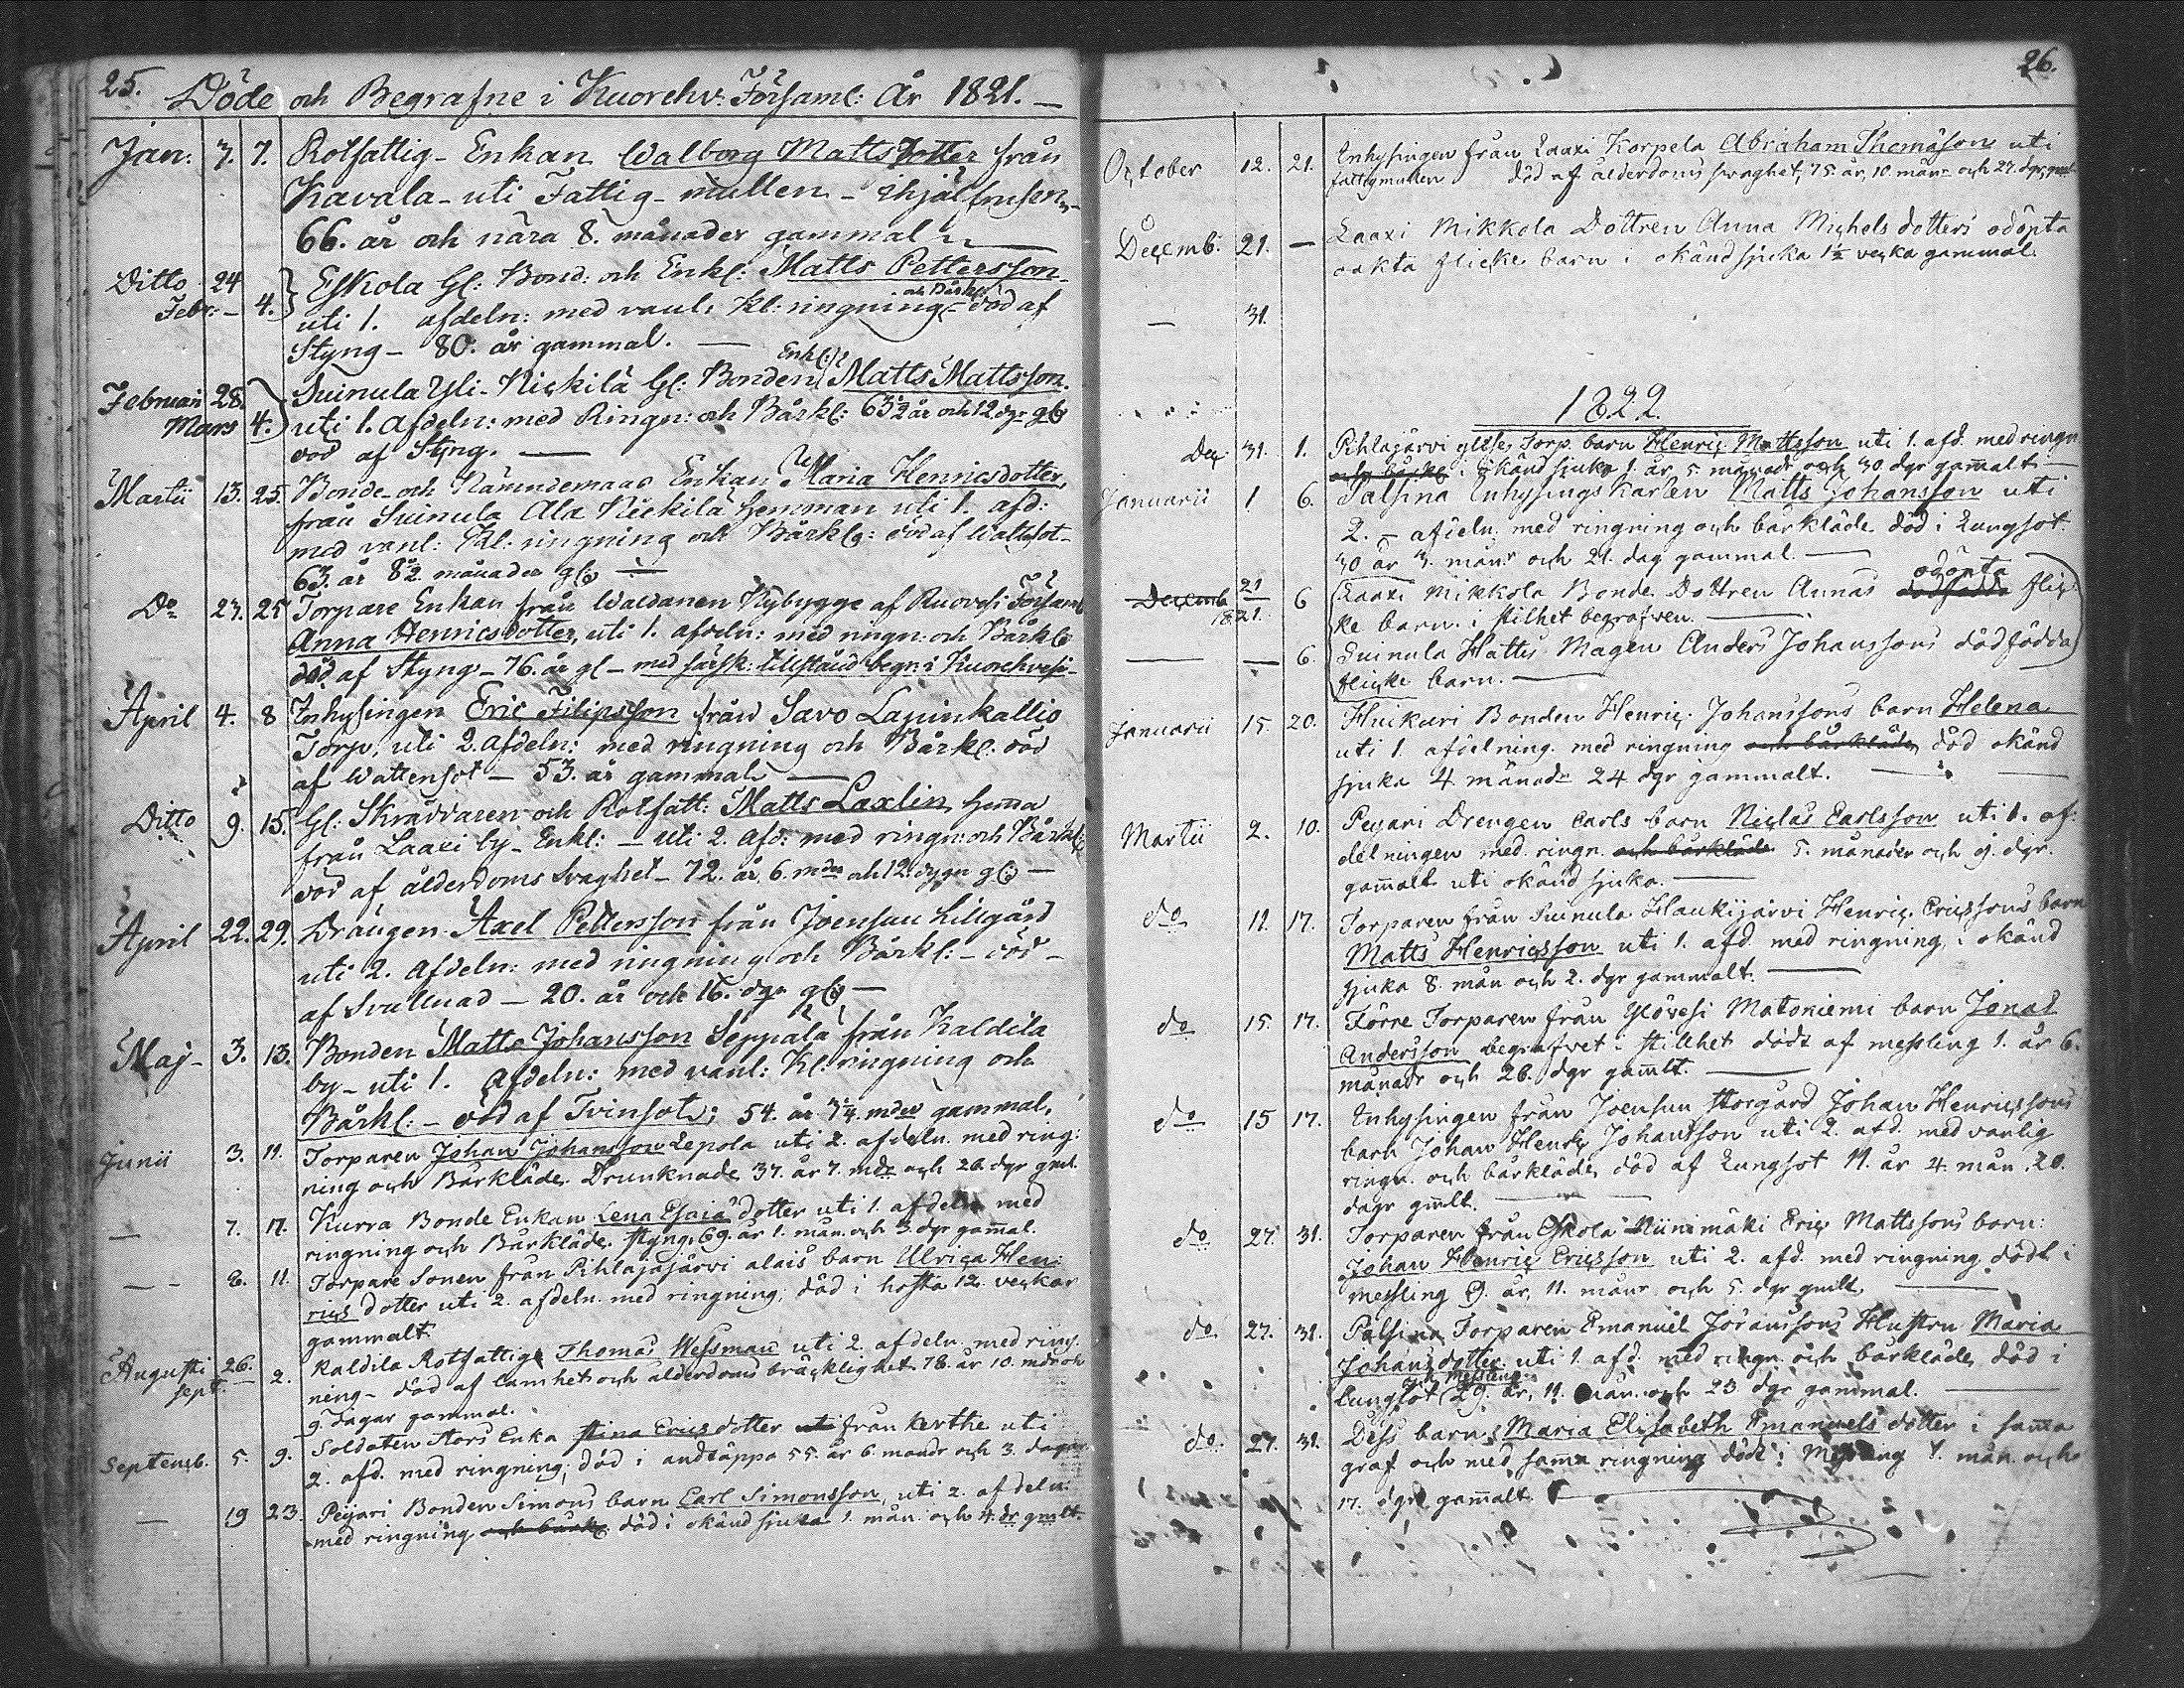 25. Döde och Begrafne i Kuorehv. Församl: År 1821. —
Jan: 7. 7. Rotfattig- Enkan Walborg Matts Dotter från
Kavala- uti Fattig- mullen - ihjälfrusen,-
66. år och nära 8. månader gammal
Ditto 24 Eskola Gl: Bond: och Enkl: Matts Pettersson
och Bårkl:
Febr. - 4. uti 1. afdeln: med vanl. Kl: ringning - död af
Styng - 80. år gammal. —
Enkl:
Februari 28. Suinula Yli- Nickilä Gl: Bonden Matts Mattsson.
Mars 4. uti 1. Afdeln: med Ringn: och Bårkl: 63½ år och 12 dgr gl
död af Styng. —
Martii 13. 25. Bonde- och Nämndemans Enkan Maria Henricsdotter,
från Suinula Ala Nickilä Hemman uti 1. afd:
med vanl: Kl: ringning och Bårkl: död af Wattsot-
63. år 8½ månader gl: —
Do 23. 25 Torpare Enkan från Waldanen Nybygge af Ruovesi Församl
Anna Henricsdotter, uti 1. afdeln: med ringn: och Bårkl
död af Styng - 76. år gl - med särsk: tillstånd begr: i Kuorehvesi-
April 4. 8 Inhysingen Eric Filipsson från Savo Lapinkallio
Torp, uti 2. Afdeln: med ringning och Bårkl: död
af Wattensot - 53. år gammal —
Ditto 9. 15. Gl: Skräddaren och Rotfatt: Matts Laxlin, hemma
från Laaxi by- Enkl: - uti 2. afd: med ringn: och Bårkl:
död af ålderdoms svaghet - 72. år 6. mdr och 12. dygn gl —
April 22. 29. Drängen Axel Pettersson från Joensuu Lillgård
uti 2. Afdeln: med ringning och Bårkl: - död -
af Svullnad - 20. år och 16. dgr gl —
Maj- 3. 13. Bonden Matts Johansson Seppälä från Kaldila
by - uti 1. Afdeln: med vanl: Kl: ringning och
Bårkl: - död af Tvinsot; 54. år mder gammal.
Junii 3. 11. Torparen Johan Johansson Lepola uti 2. afdeln. med ring:
ning och Bårkläde. Drunknade 37. år 7. mdr och 26. dgr gml.
— 7. 17. Kurra Bonde Enkan Lena Esaiä dotter uti 1. afdeln med
ringning och Bårkläde. Styng, 69. år 1. mån. och 3. dgr gamal.
— 8. 11. Torpare Sonen från Pihlajajärvi alais barn Ulrica Hen:
rics dotter uti 2. afdeln. med ringning, död i hosta 12. veckor
gammalt.
Augusti 26. Kaldila Rotfattige Thomas Wessman uti 2. afdeln. med ring.
Sept. — 2. ning - död af lamhet och ålderdoms bräcklighet 78. år 10. mdr och
9. dagar gammal.
Septemb. 5. 9. Soldaten Stors Enka Stina Ericsdotter uti från Kerthe uti
2. afd. med ringning; död i andtäppa 55. år 6. månadr och 3. dagar
— 19 23. Peijari Bonden Simons barn Carl Simonsson, uti 2. afdeln.
med ringning och bårkl. död i okänd sjuka 1. mån och 4. dr gmlt.
26.
October 12. 21. Inhysingen från Laaxi Korpela Abraham Thomasson uti
fattigmullen död af ålderdoms svaghet, 75. år, 10. mån och 27. dgr, gml.
Decemb. 21. — Laaxi Mikkola Dottren Anna Michels dotters odöpta
oäkta flicke barn i okänd sjuka 1½ vecka gammal.
— 31.
1822.
Dec 31. 1. Pihlajärvi Torp. barn Henric Mattsson uti 1. afd. med ringn
och bårkl i okänd sjuka 1. år, 5. månadr och 30. dgr gamalt —
Januarii 1 6. Palsina Inhysings Karlen Matts Johansson uti
2. - afdeln. med ringning och bårkläde död i Lungsot.
30 år 3. mån och 21. dag gammal. —
odöpta
Decemb 21 6 Laaxi Mikkola Bonde Dottren Annas dödfödda flic:
1821. ke barn i stilhet begrafven. —
— — 6. Suinula Hattu Magen Anders Johanssons dödfödda
flicke barn. —
Januarii 15. 20. Huikuri Bonden Henric Johanssons barn Helena
uti 1. afdelning med ringning och bårkläde död okänd
sjuka 4. månadr 24 dgr gammalt. —
Martii 2. 10. Peijari Drengen Carls barn Niclas Carlsson uti 1. af:
delningen med ringn. och bårkläde 5. månader och 9. dgr.
gamalt uti okänd sjuka. —
do 11. 17. Torparen från Suinula Haukijärvi Henric Ericssons barn
Matts Henricsson uti 1. afd. med ringning, i okänd
sjuka 8. mån och 2. dgr gammalt. —
do 15. 17. Förre Torparen från Ylövesi Matoniemi barn Jonas
Andersson begrafvet i stillhet dödt af messling 1. år 6.
månadr och 26. dgr gamlt. —
do 15 17. Inhysingen från Joensuu Storgård Johan Henricssons
barn Johan Henric Johansson uti 2. afd. med vanlig
ringn. och bårkläde, död af Lungsot 11. år 4. mån. 20.
dagr gmlt. —
do 27. 31. Torparen från Eskola Niinimäki Eric Mattssons barn:
Johan Henric Ericsson uti 2. afd. med ringning dödt i
messling 9. år, 11. månr och 5. dgr gmlt. —
do 27. 31. Palsina Torparen Emanuel Jöranssons Hustru Maria
Johansdotter uti 1. afd. med ringn. och bårkläde, död i
och Messling
Lungsot 29. år, 11. mån. och 23. dgr gammal. —
do 27. 31. Dess barn Maria Elisabeth Emanuels dotter i sama
graf och med sama ringning dödt i Messling 4. mån och
17. dgr gamalt.